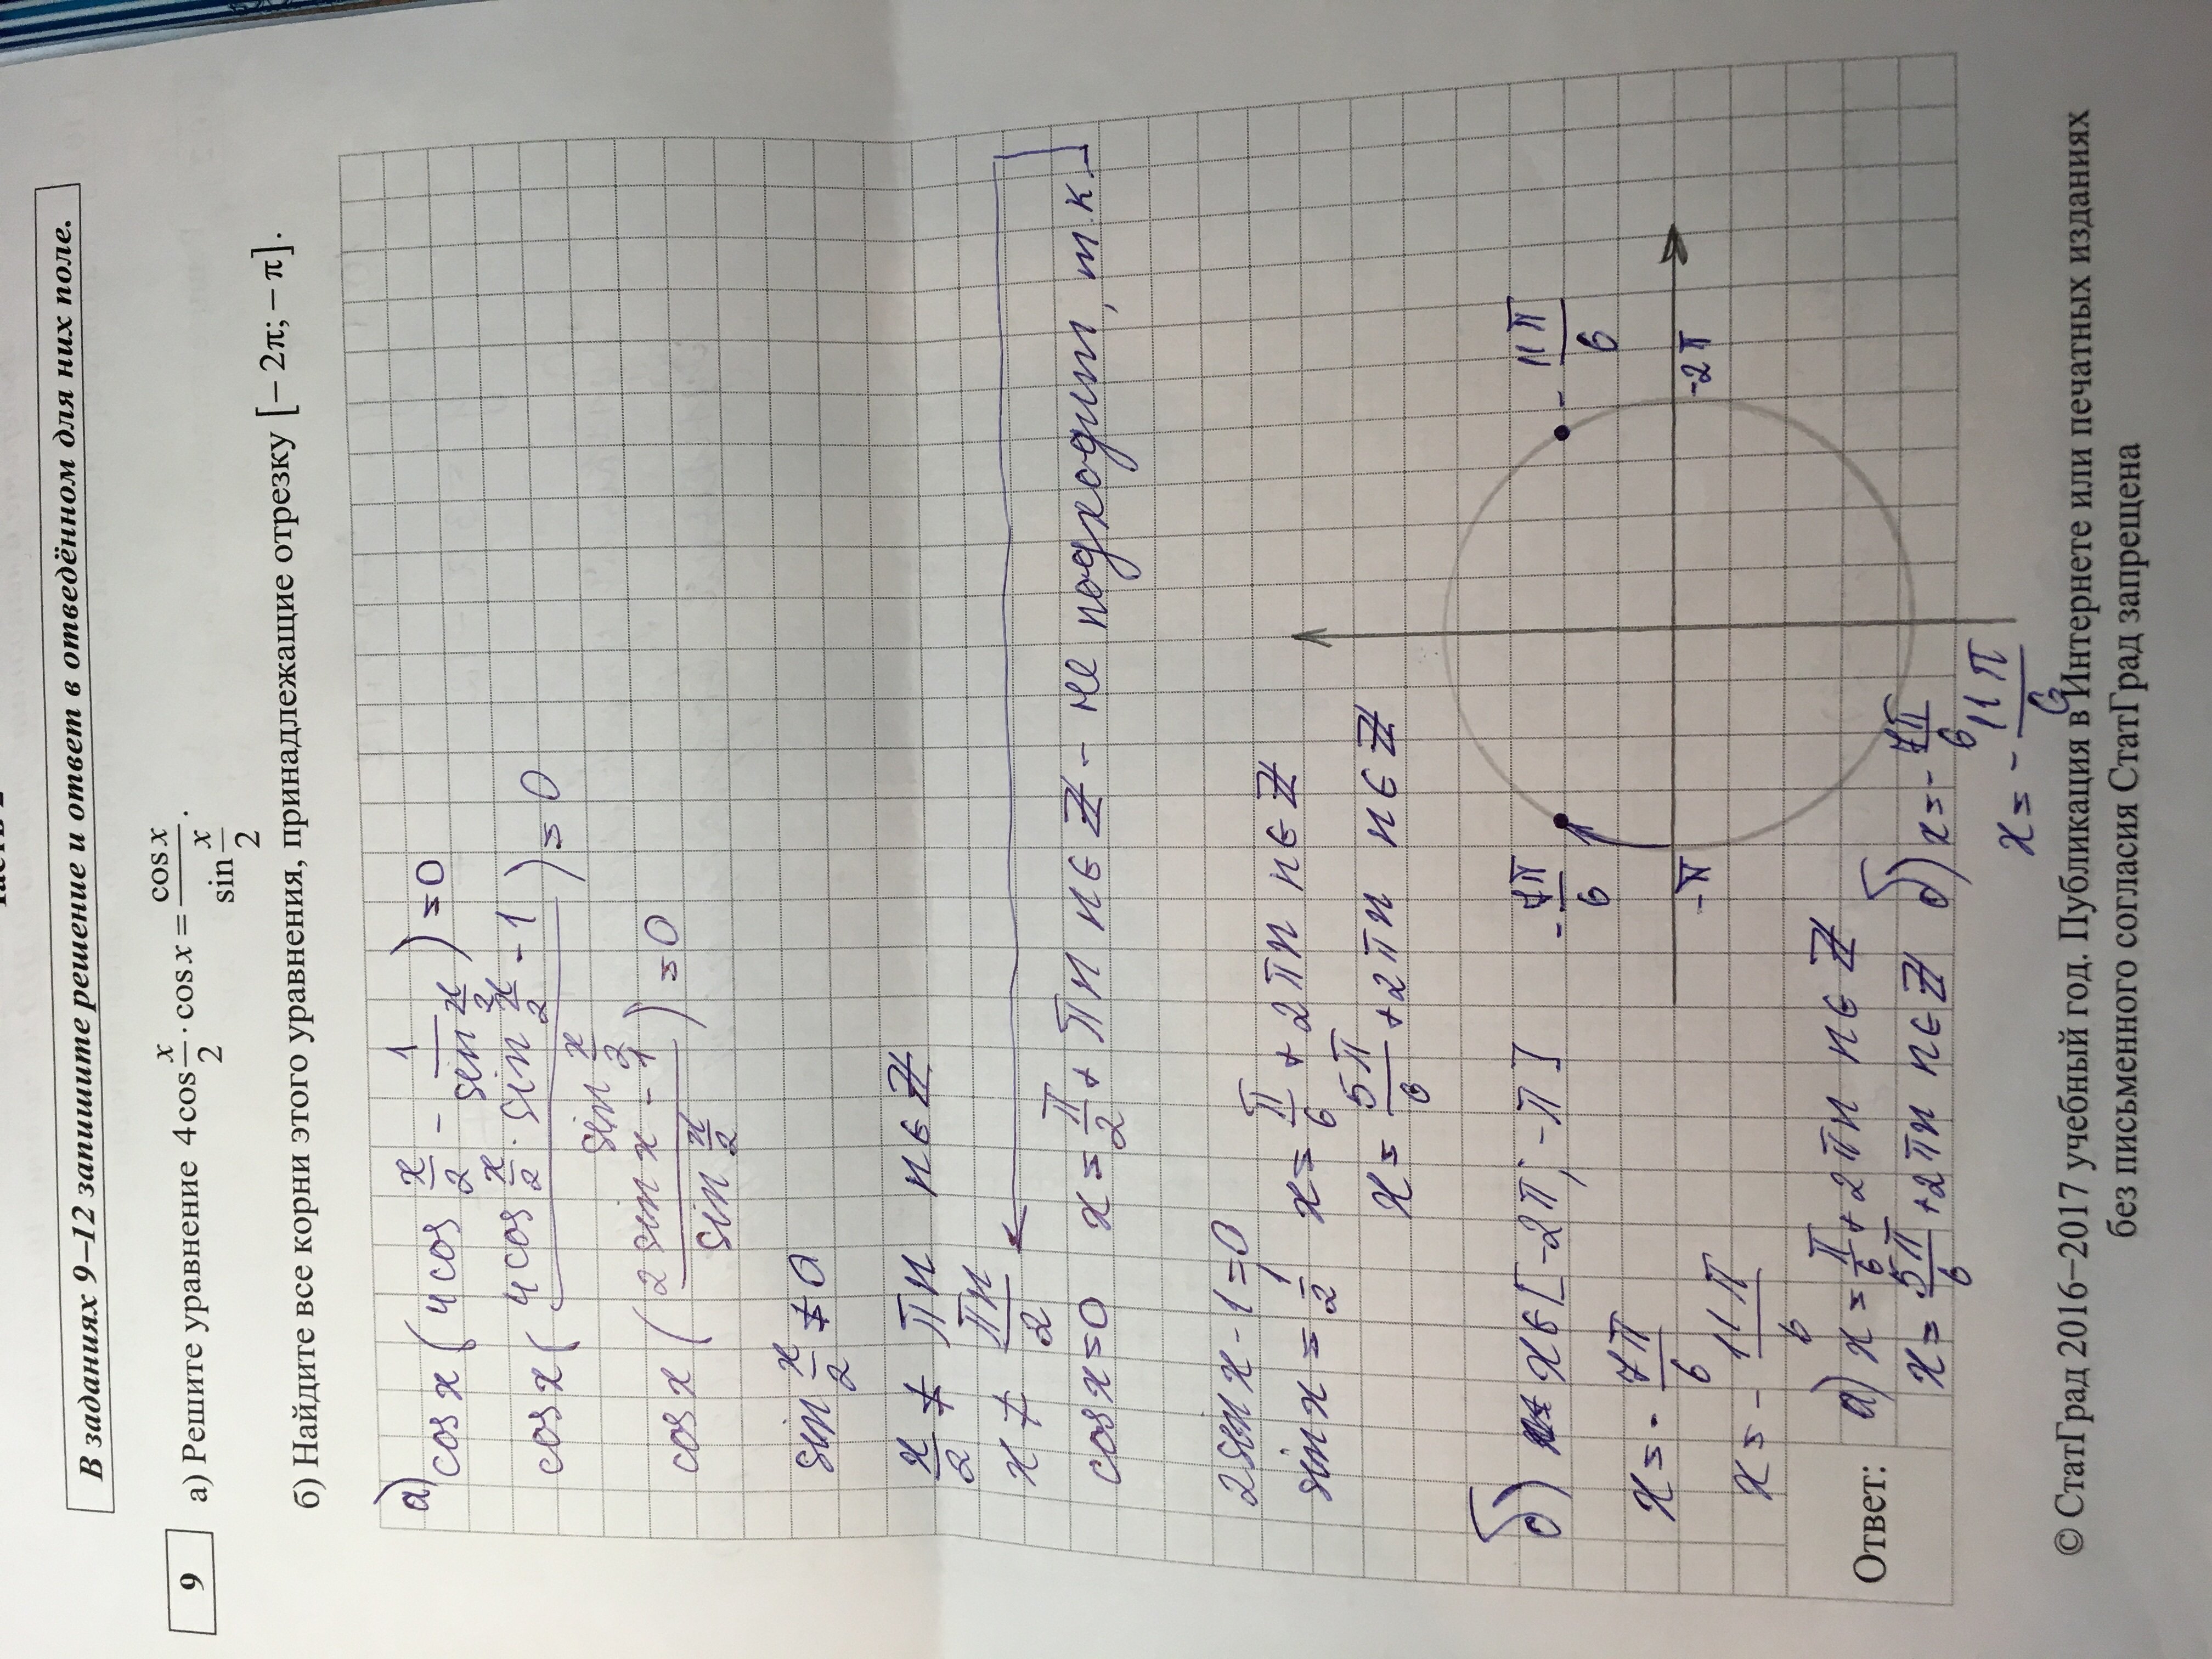 В заданиях 9–12 запишите решение и ответ в отведённом для них поле.
9
а) Решите уравнение 4cos x/2 · cos x = cos x / sin x/2.
б) Найдите все корни этого уравнения, принадлежащие отрезку [– 2π; – π].
а)
cos x (4 cos x/2 - 1/sin x/2) = 0
cos x ( (4 cos x/2 · sin x/2 - 1) / sin x/2 ) = 0
cos x ( (2 sin x - 1) / sin x/2 ) = 0
sin x/2 ≠ 0
x/2 ≠ πn n∈Z
x ≠ πn/2
cos x = 0 x = π/2 + πn n∈Z - не подходит, т.к.
2 sin x - 1 = 0
sin x = 1/2
x = π/6 + 2πn n∈Z
x = 5π/6 + 2πn n∈Z
б) x∈[-2π; -π]
x = - 7π/6
x = - 11π/6
- 7π/6
- 11π/6
-π
-2π
Ответ:
а) x = π/6 + 2πn n∈Z
x = 5π/6 + 2πn n∈Z
б) x = - 7π/6
x = - 11π/6
© СтатГрад 2016–2017 учебный год. Публикация в Интернете или печатных изданиях
без письменного согласия СтатГрад запрещена